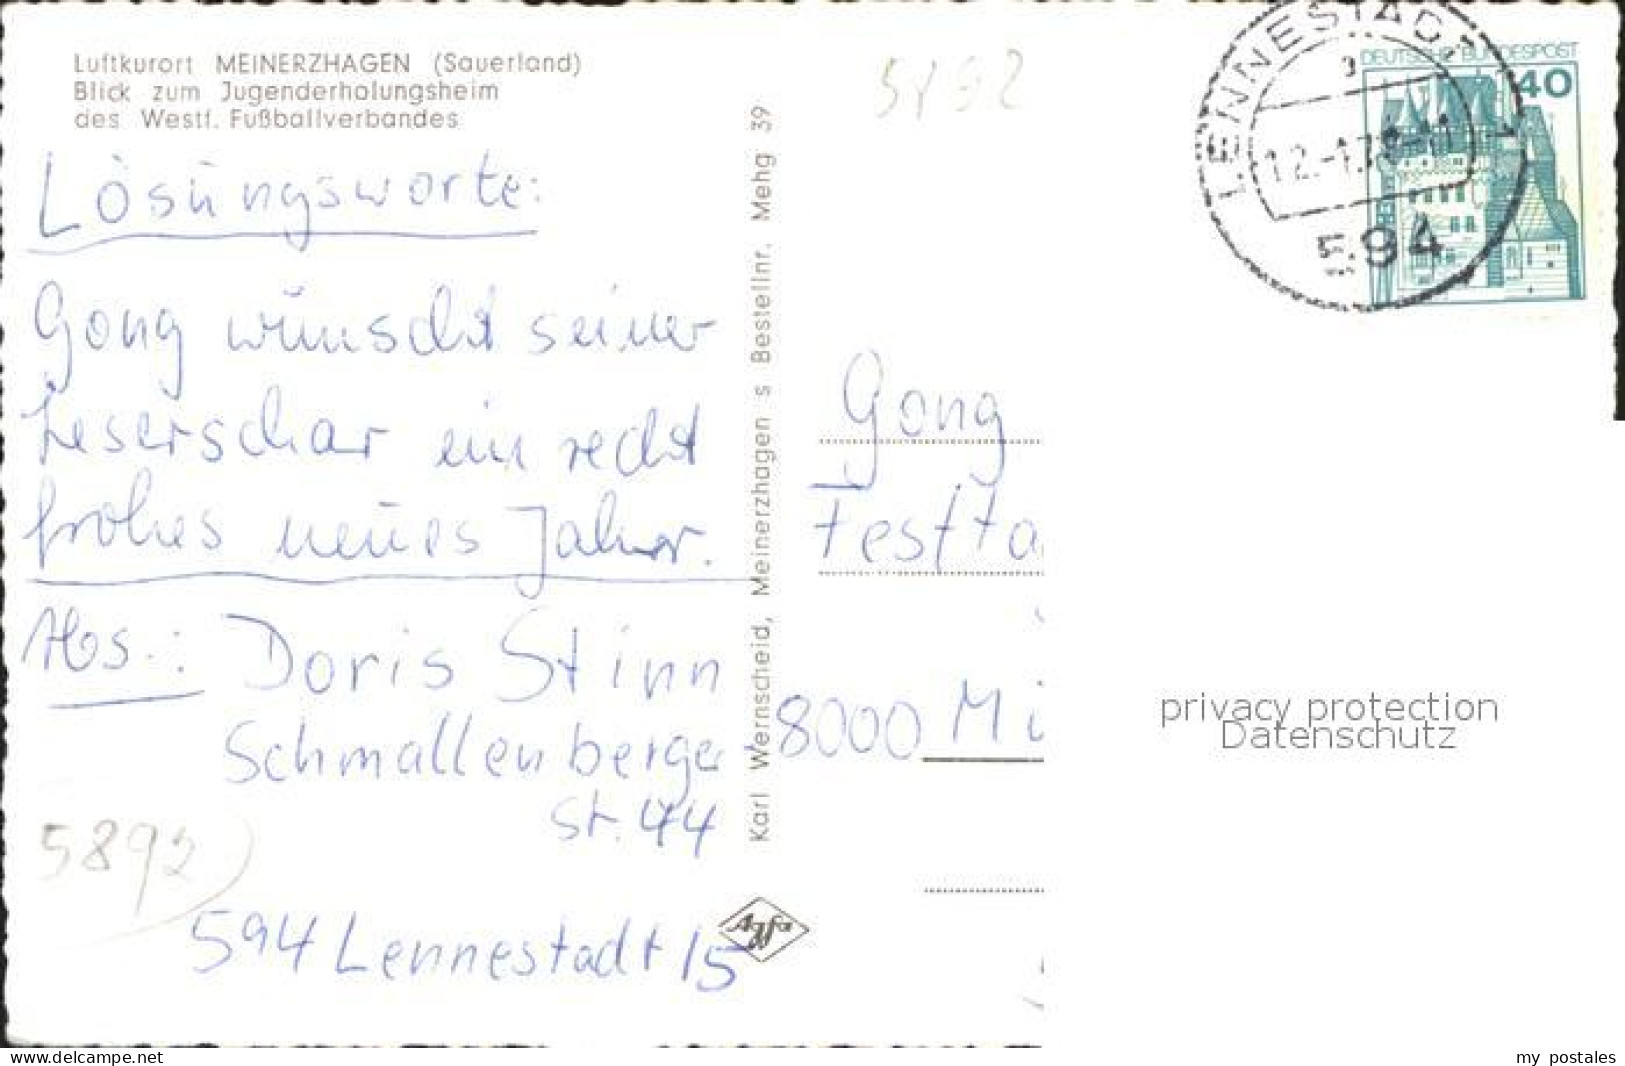 Luftkurort MEINERZHAGEN (Sauerland)
Blick zum Jugenderholungsheim
des Westf. Fußballverbandes
Lösungsworte:
Gong wünscht seiner
Leserschar ein recht
frohes neues Jahr.
Abs.:
Doris Stinn
Schmallenberger
St. 44
5892
594 Lennestadt 15
Agfa
Karl Wernscheid, Meinerzhagen s Bestellnr. Mehg 39
LENNESTADT 1
12.-1.78-11
594
DEUTSCHE BUNDESPOST
40
Gong
Festta
8000 Mü
privacy protection
Datenschutz
www.delcampe.net
my postales